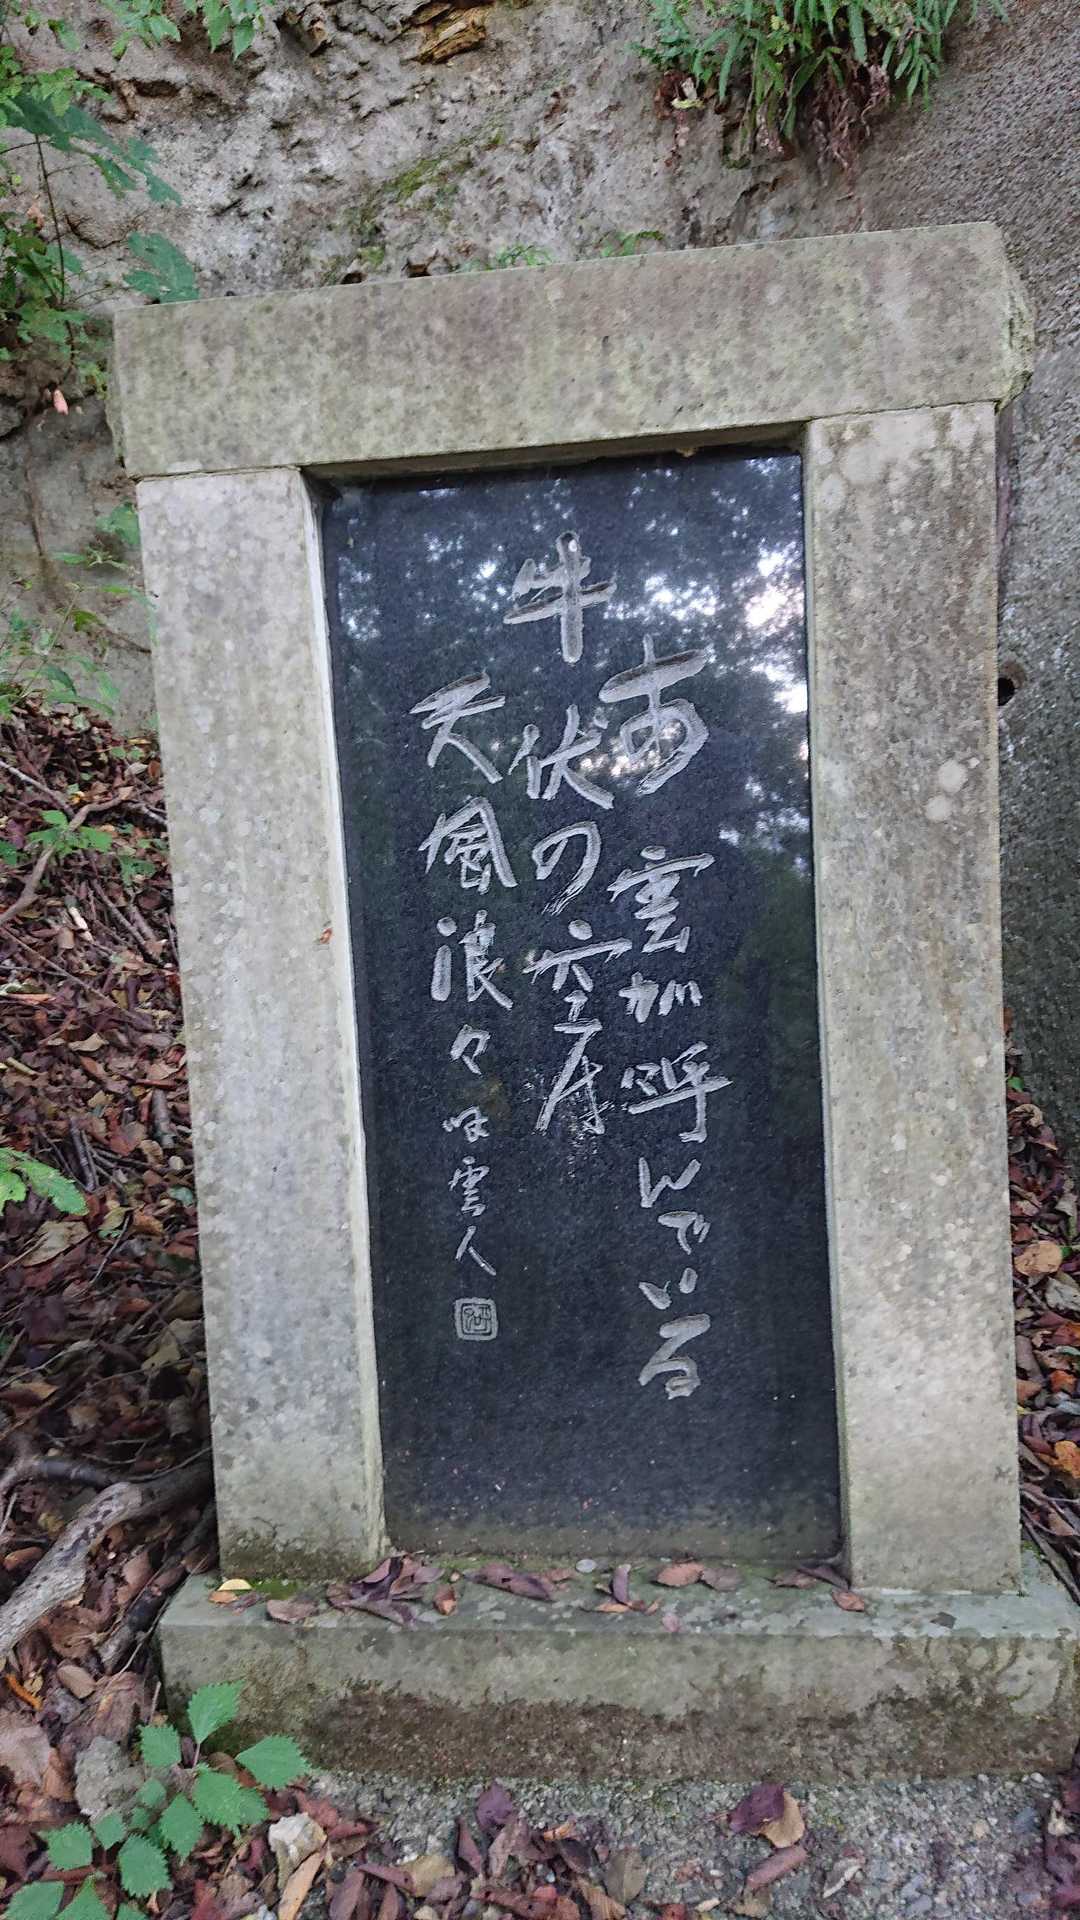 あ 雲が呼んでいる
牛伏の空
天風浪々 雲人